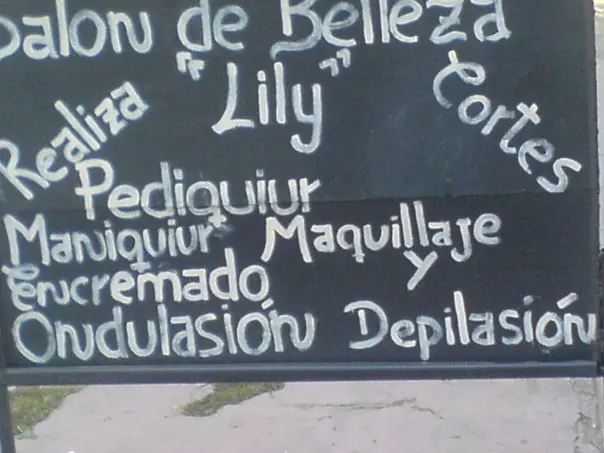 Salon de Belleza
"Lily"
Realiza Cortes
Pediquiur
Maniquiur Maquillaje
encremado y
Ondulasión Depilasión